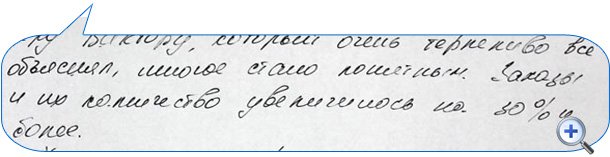 Виктору, который очень терпеливо все
объяснял, многое стало понятным. Заказы
и их количество увеличилось на 30% и
более.